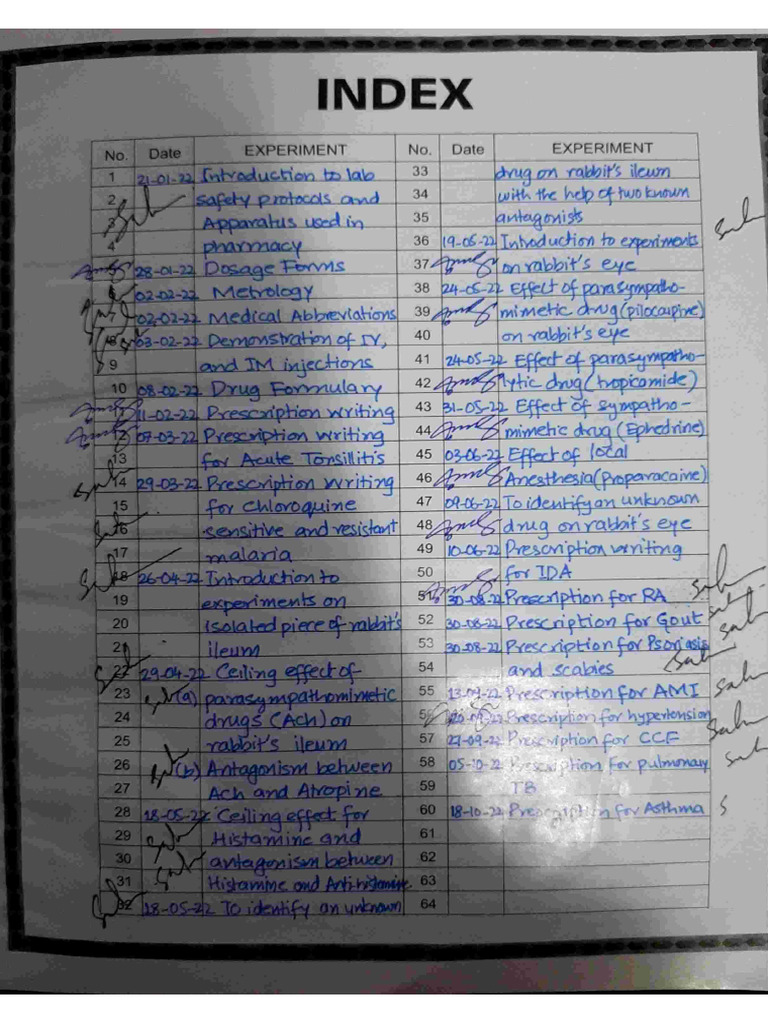 INDEX
No. Date EXPERIMENT
1 21-01-22 Introduction to lab
2 safety protocols and
3 Apparatus used in
4 pharmacy
5 28-01-22 Dosage Forms
02-02-22 Metrology
02-02-22 Medical Abbreviations
8 03-02-22 Demonstration of IV,
9 and IM injections
10 08-02-22 Drug Formulary
11 11-02-22 Prescription writing
12 07-03-22 Prescription writing
13 for Acute Tonsilitis
14 29-03-22 Prescription writing
15 for chloroquine
16 sensitive and resistant
17 malaria
18 26-04-22 Introduction to
19 experiments on
20 isolated piece of rabbit's
21 ileum
22 29-04-22 Ceiling effect of
23 (a) parasympathomimetic
24 drugs (Ach) on
25 rabbit's ileum
26 (b) Antagonism between
27 Ach and Atropine
28 18-05-22 Ceiling effect for
29 Histamine and
30 antagonism between
31 Histamine and Anti-histamine
32 18-05-22 To identify an unknown
No. Date EXPERIMENT
33 drug on rabbit's ileum
34 with the help of two known
35 antagonists
36 19-05-22 Introduction to experiments
37 on rabbit's eye
38 24-05-22 Effect of parasympatho-
39 mimetic drug (pilocarpine)
40 on rabbit's eye
41 24-05-22 Effect of parasympatho-
42 lytic drug (tropicamide)
43 31-05-22 Effect of sympatho-
44 mimetic drug (Ephedrine)
45 03-06-22 Effect of local
46 Anesthesia (Proparacaine)
47 09-06-22 To identify an unknown
48 drug on rabbit's eye
49 10-06-22 Prescription writing
50 for IDA
51 30-08-22 Prescription for RA
52 30-08-22 Prescription for Gout
53 30-08-22 Prescription for Psoriasis
54 and scabies
55 13-09-22 Prescription for AMI
56 20-09-22 Prescription for hypertension
57 27-09-22 Prescription for CCF
58 05-10-22 Prescription for pulmonary
59 TB
60 18-10-22 Prescription for Asthma
61
62
63
64